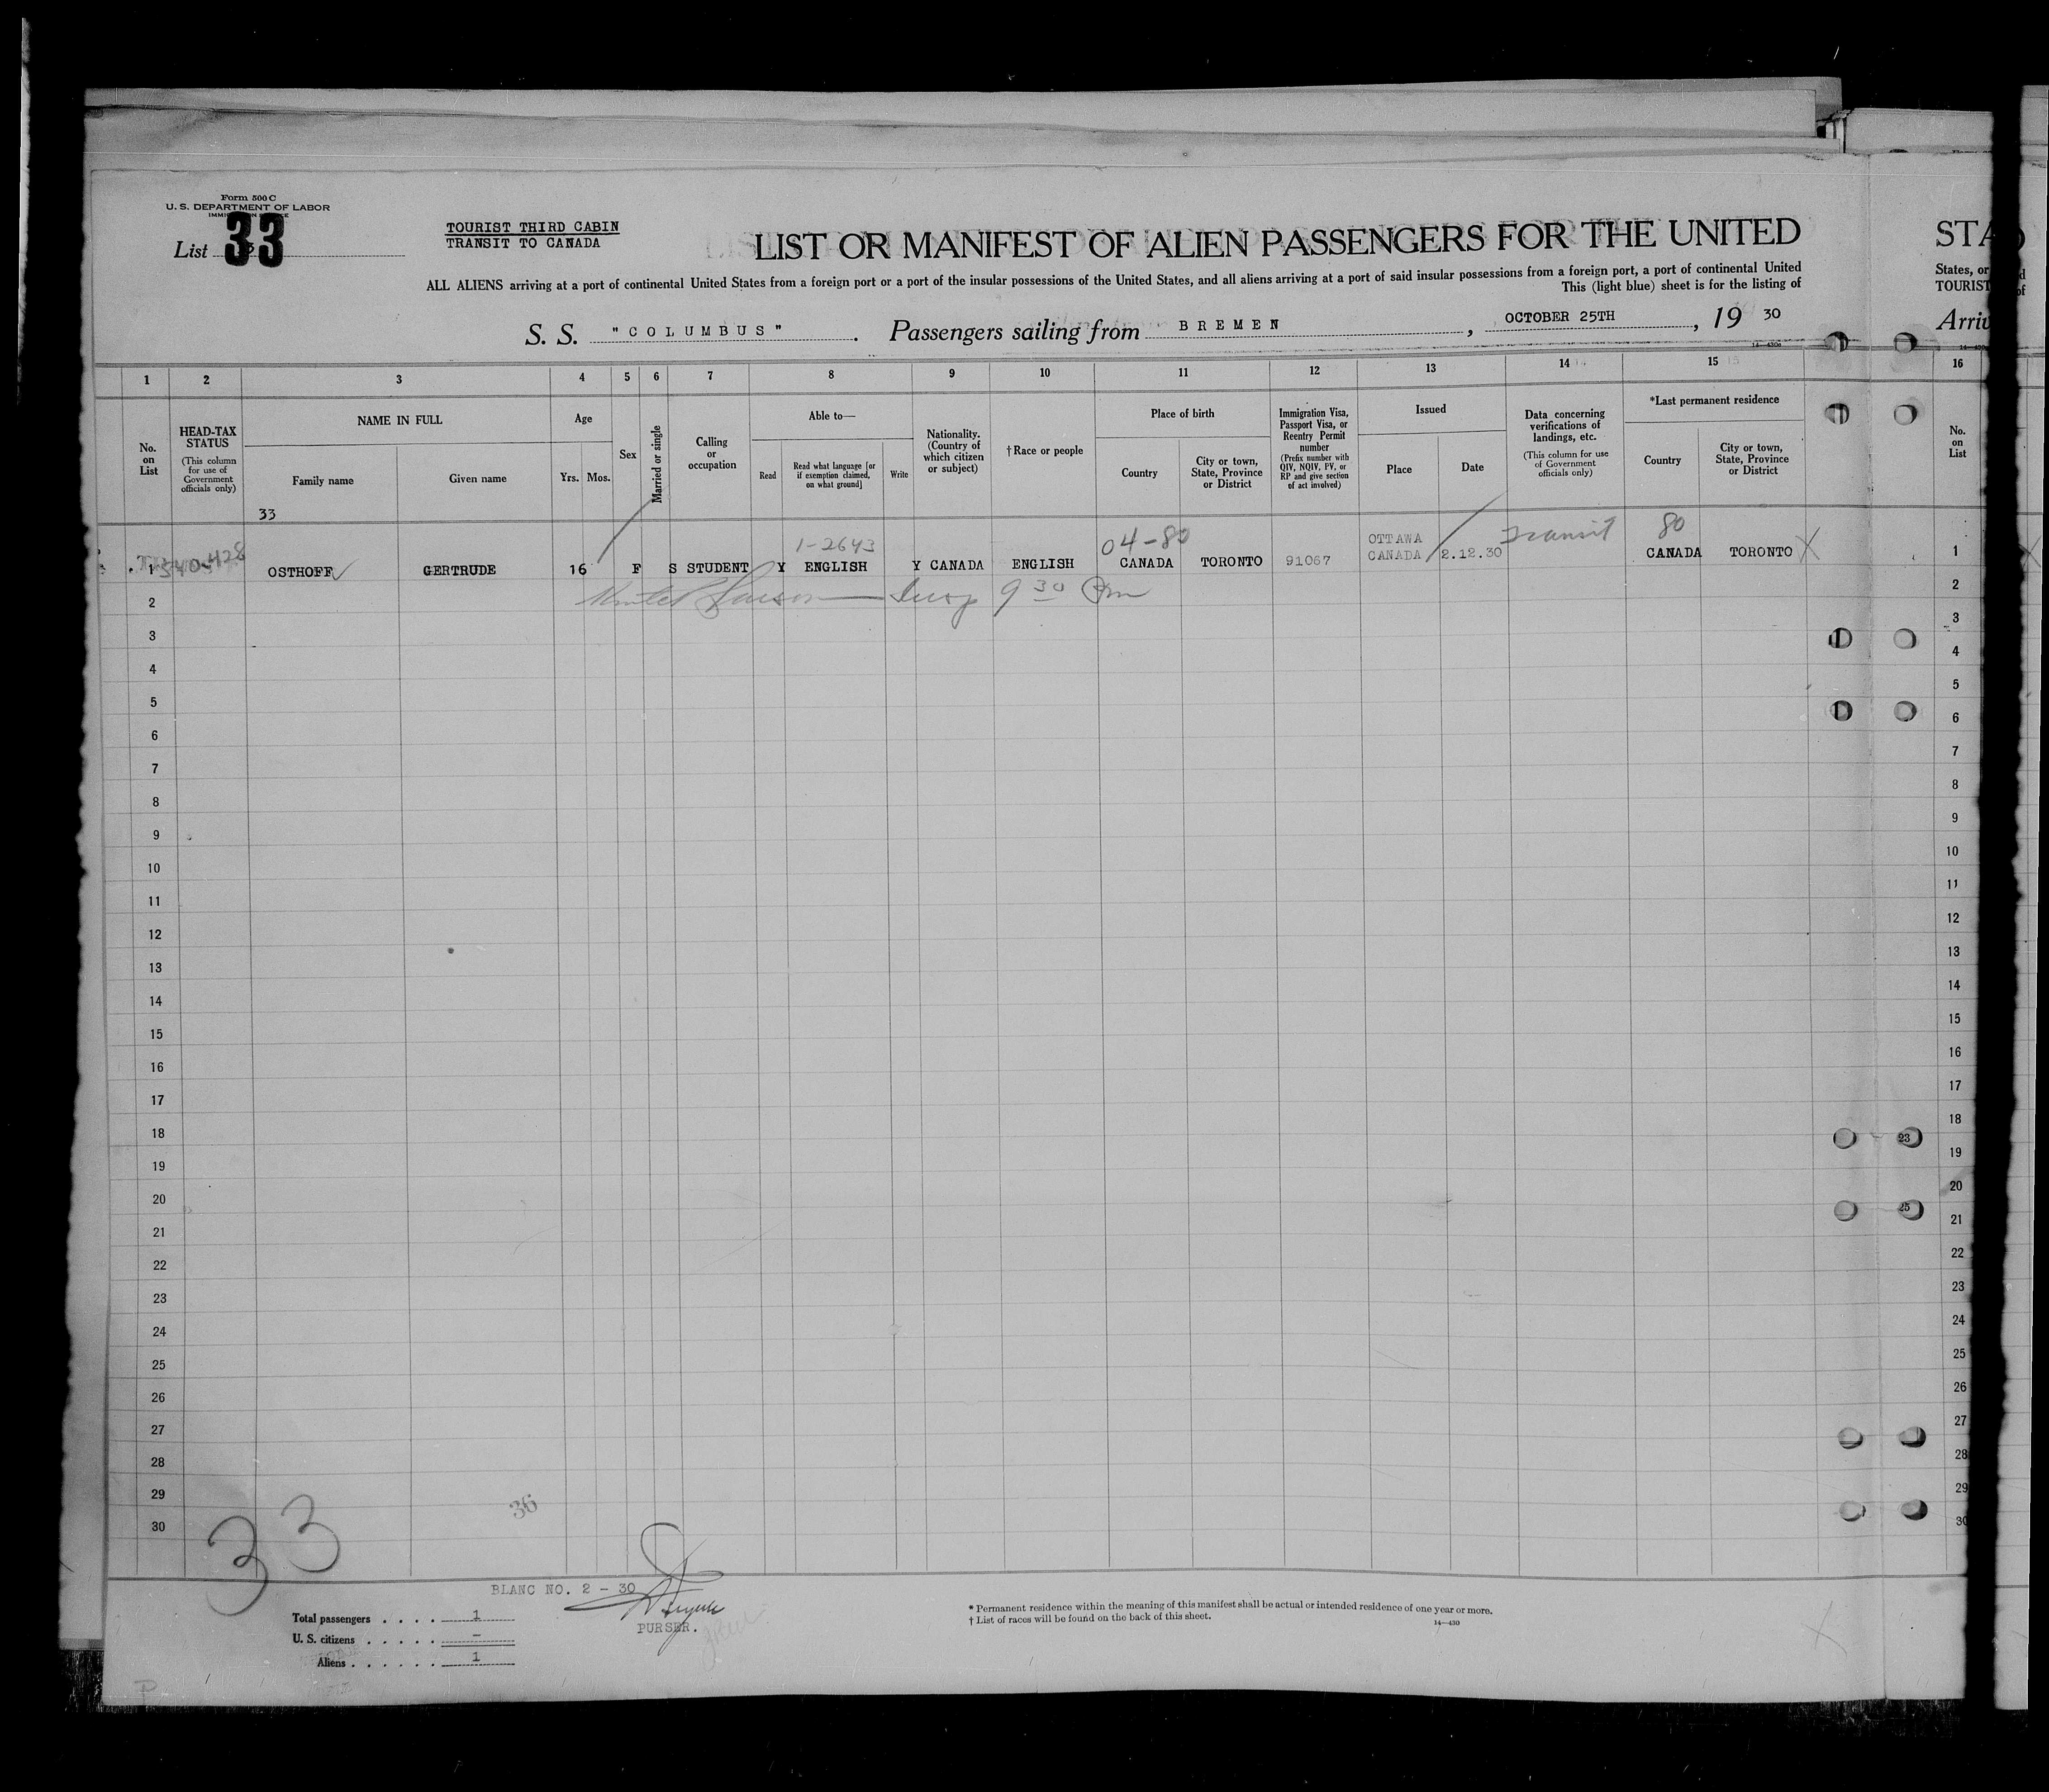 Form 500 C
U. S. DEPARTMENT OF LABOR
List 33
TOURIST THIRD CABIN
TRANSIT TO CANADA
LIST OR MANIFEST OF ALIEN PASSENGERS FOR THE UNITED
ALL ALIENS arriving at a port of continental United States from a foreign port or a port of the insular possessions of the United States, and all aliens arriving at a port of said insular possessions from a foreign port, a port of continental United
This (light blue) sheet is for the listing of
S. S. "COLUMBUS". Passengers sailing from BREMEN, OCTOBER 25TH, 19 30
STA
States, or
TOURIST
Arriv
1 2 3 4 5 6 7 8 9 10 11 12 13 14 15 16
No. on List
HEAD-TAX STATUS (This column for use of Government officials only)
NAME IN FULL
Family name
Given name
Age
Yrs. Mos.
Sex
Married or single
Calling or occupation
Able to—
Read
Read what language [or if exemption claimed, on what ground]
Write
Nationality. (Country of which citizen or subject)
† Race or people
Place of birth
Country
City or town, State, Province or District
Immigration Visa, Passport Visa, or Reentry Permit number (Prefix number with QIV, NQIV, PV, or RP and give section of act involved)
Issued
Place
Date
Data concerning verifications of landings, etc. (This column for use of Government officials only)
*Last permanent residence
Country
City or town, State, Province or District
No. on List
33
1-2643
04-80
Transit
80
1 OSTHOFF GERTRUDE 16 F S STUDENT Y ENGLISH Y CANADA ENGLISH CANADA TORONTO 91067 OTTAWA CANADA 2.12.30 CANADA TORONTO X 1
9 30 Pm
2 2
3 3
4 4
5 5
6 6
7 7
8 8
9 9
10 10
11 11
12 12
13 13
14 14
15 15
16 16
17 17
18 18
19 19
20 20
21 21
22 22
23 23
24 24
25 25
26 26
27 27
28 28
29 29
30 30
33
36
BLANC NO. 2 - 30
PURSER.
Total passengers . . . . 1
U. S. citizens . . . . . –
Aliens . . . . . . 1
* Permanent residence within the meaning of this manifest shall be actual or intended residence of one year or more.
† List of races will be found on the back of this sheet.
14—430